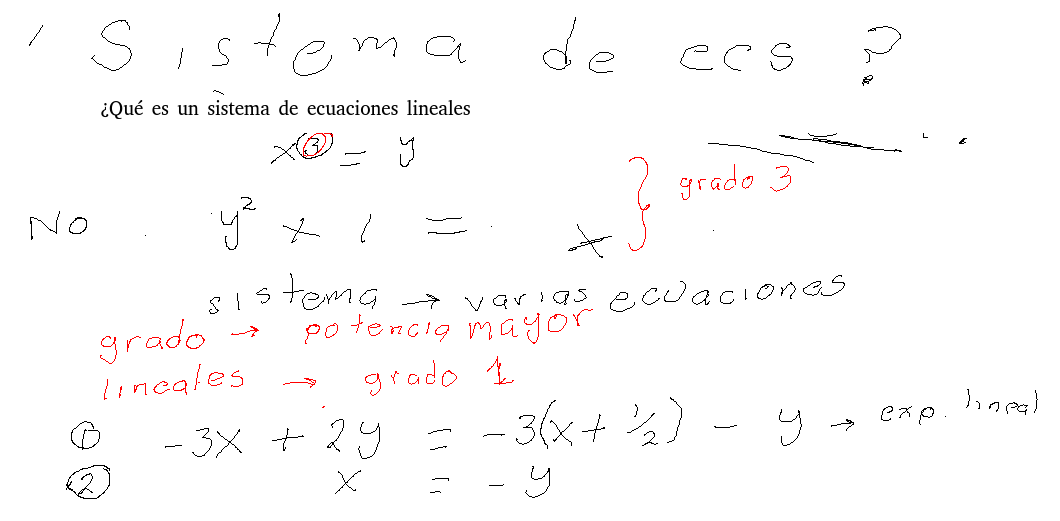 Sistema de ecs ?
¿Qué es un sistema de ecuaciones lineales
x³ = y
grado 3
No y² + 1 = x
sistema → varias ecuaciones
grado → potencia mayor
lineales → grado 1
① -3x + 2y = -3(x + 1/2) - y → exp. lineal
② x = -y